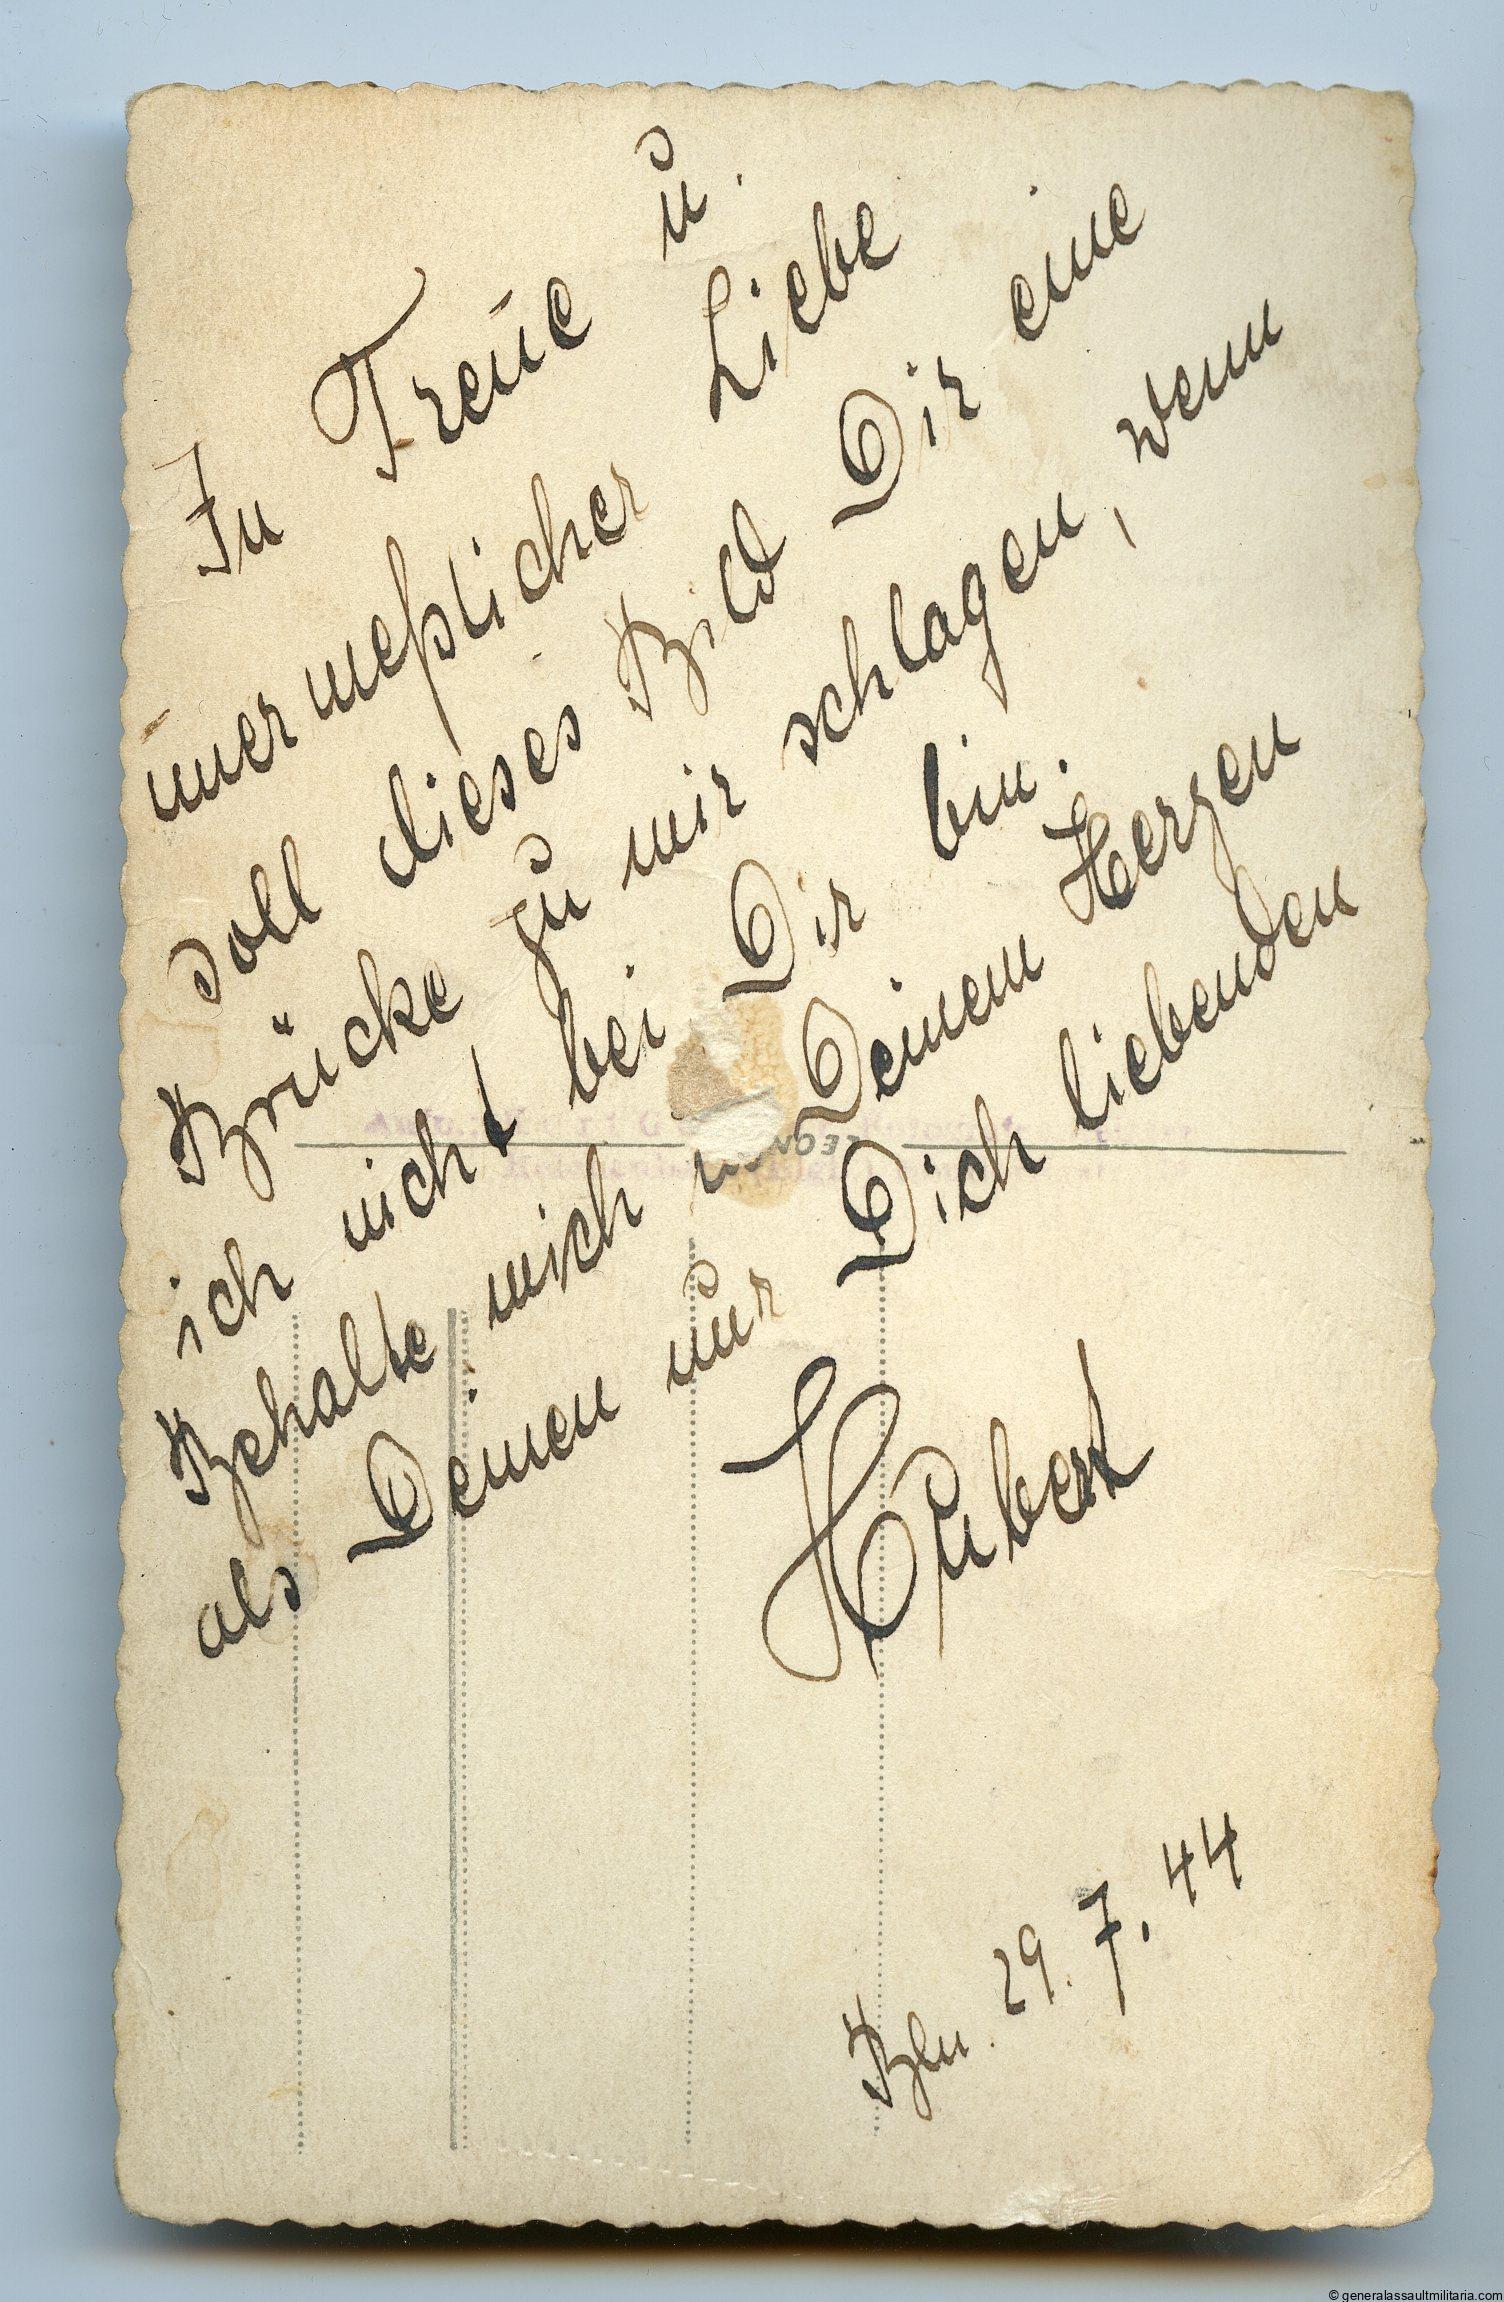 In Treue u.
unermeßlicher Liebe
soll dieses Bild Dir eine
Brücke zu mir schlagen, wenn
ich nicht bei Dir bin.
Behalte mich in Deinem Herzen
als Deinen nur Dich liebenden
Hubert
Bln. 29.7.44
LEONAR
© generalassaultmilitaria.com